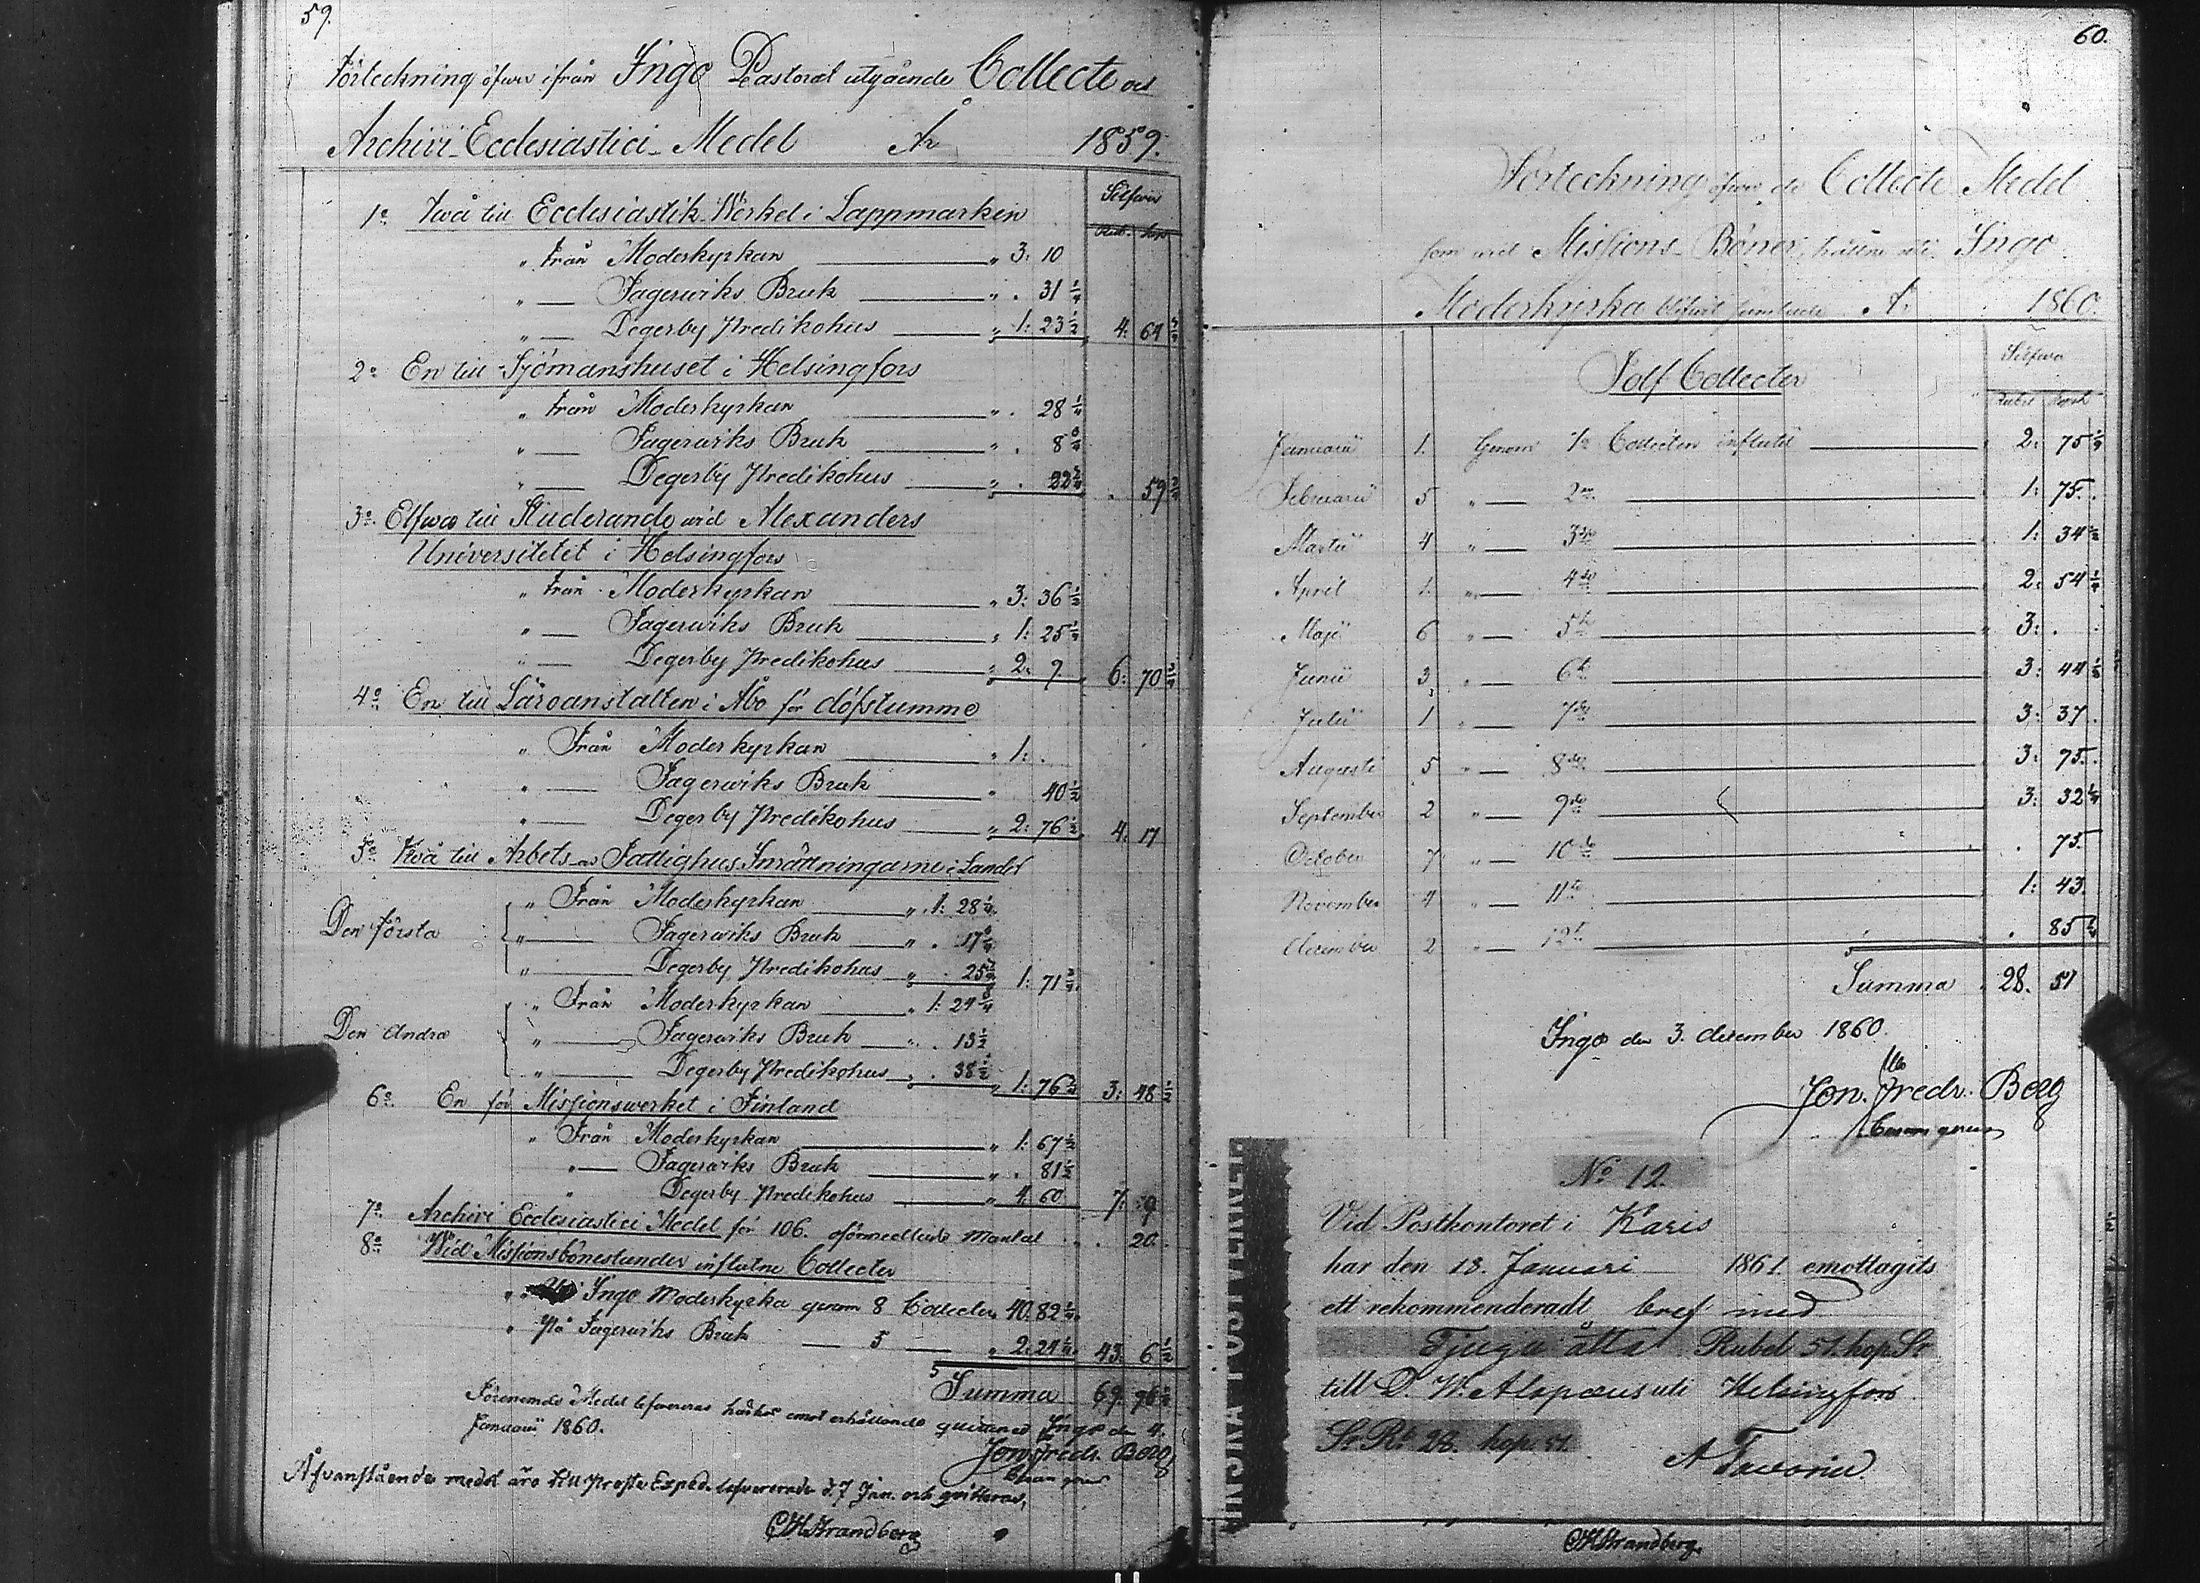 59.
Förteckning öfwer ifrån Ingo Pastorat utgående Collecte och
Archivi-Ecclesiastici-Medel År 1859.
Silfwer
Rub. kop
1o Twå till Ecclesiastik-Werket i Lappmarken
" Från Moderkyrkan " 3: 10
" — Fagerwiks Bruk " . 31 1/4
" — Degerby Predikohus " 1: 23 1/2 4: 64 3/4
2o En till Sjömanshuset i Helsingfors
" Från Moderkyrkan " . 28 1/4
" — Fagerwiks Bruk " . 8 3/4
" — Degerby Predikohus " . 22 3/4 . 59 3/4
3o Elfwa till Studerande wid Alexanders
Universitetet i Helsingfors
" Från Moderkyrkan " 3: 36 1/2
" — Fagerwiks Bruk " 1: 25 1/4
" — Degerby Predikohus " 2: 9 6: 70 3/4
4o En till Läroanstalten i Åbo för döfstumme
" Från Moderkyrkan " 1: .
" — Fagerwiks Bruk " 40 1/2
" — Degerby Predikohus " 2: 76 1/2 4: 17
5o Twå till Arbets- och Fattighus Inrättningarne i Landet
" Från Moderkyrkan " 1: 28 1/4
Den första " — Fagerwiks Bruk " . 17 3/4
" — Degerby Predikohus " . 25 3/4 1: 71 3/4
" Från Moderkyrkan " 1: 24 3/4
Den Andra " — Fagerwiks Bruk " . 13 1/2
" — Degerby Predikohus " . 38 1/2 " 1: 76 3/4 3: 48 1/2
6o En för Missionswerket i Finland
" Från Moderkyrkan " 1: 67 1/2
" — Fagerwiks Bruk " . 81 1/2
" Degerby Predikohus " 4: 60 7: 9
7o Archivi Ecclesiastici Medel för 106. oförmedlade Mantal . 20.
8o Wid Missionsbönestunder influtne Collecter
" Ingo Moderkyrka genom 8 Collecter 40: 82 1/4
" På Fagerwiks Bruk — 5 — " 2: 24 1/4 43: 6 1/2
Summa 69. 76 1/4
Förenemde Medel lefwereras härhos emot erhållande quitance Ingo den 4.
Januarii 1860.
Jon. Fredr. Berg
Afvanstående medel äro till Prosts Exped. lefvererade d. 7 Jan. och qvitteras,
CHStrandberg
60.
Förteckning öfwer de Collecte Medel
som wid Missions-Böner, hållne uti Ingo
Moderkyrka blifwit samlade År 1860.
Silfwer
Tolf Collecter
Rubel Kopek
Januarii 1. Genom 1a Collecten influtit 2: 75 1/4
Februarii 5 " — 2ra 1: 75.
Martii 4 " — 3die 1: 34 1/2
April 1. " — 4de 2: 54 1/4
Maji 6 " — 5te 3: .
Junii 3 " — 6te 3: 44 1/2
Julii 1 " — 7de 3: 37.
Augusti 5 " — 8de 3: 75.
September 2 " — 9de 3: 32 1/4
October 7 " — 10de . 75.
November 4 " — 11te 1: 43.
December 2 " — 12te . 85 1/4
Summa 28. 51
Ingo den 3. december 1860.
Jon. Fredr. Berg
No 12.
Vid Postkontoret i Karis
har den 13. Januari 1861. emottagits
ett rekommenderadt bref med
Tjugu åtta Rubel 51. kop. Sr
till D. W. Alopæus uti Helsingfors
Sr Rb. 28. kop 51.
A Favorin
CHStrandberg.